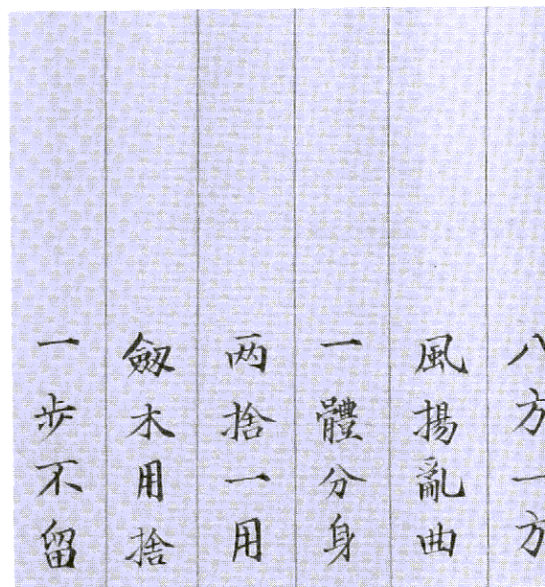 八方一方
風揚亂曲
一體分身
两捨一用
劔木用捨
一步不留